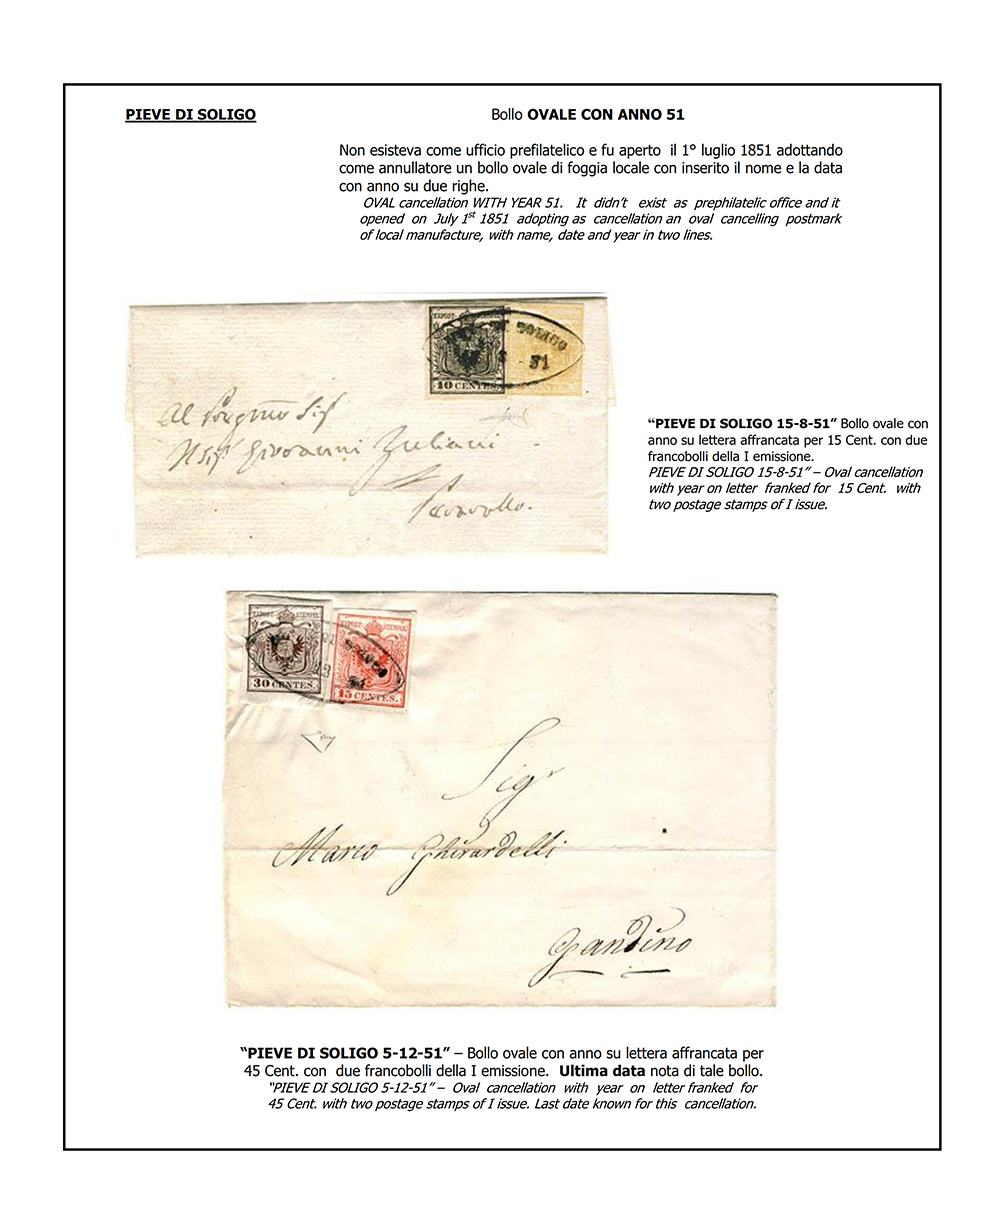 PIEVE DI SOLIGO
Bollo OVALE CON ANNO 51
Non esisteva come ufficio prefilatelico e fu aperto il 1° luglio 1851 adottando
come annullatore un bollo ovale di foggia locale con inserito il nome e la data
con anno su due righe.
OVAL cancellation WITH YEAR 51. It didn't exist as prephilatelic office and it
opened on July 1st 1851 adopting as cancellation an oval cancelling postmark
of local manufacture, with name, date and year in two lines.
DI SOLIGO
51
10 CENTES.
Al
Giovanni Zuliani
"PIEVE DI SOLIGO 15-8-51" Bollo ovale con
anno su lettera affrancata per 15 Cent. con due
francobolli della I emissione.
PIEVE DI SOLIGO 15-8-51" – Oval cancellation
with year on letter franked for 15 Cent. with
two postage stamps of I issue.
KKPOST-STEMPEL
SOLIGO
30 CENTES.
15 CENTES.
Sigr
Marco Ghirardelli
Gandino
"PIEVE DI SOLIGO 5-12-51" – Bollo ovale con anno su lettera affrancata per
45 Cent. con due francobolli della I emissione. Ultima data nota di tale bollo.
"PIEVE DI SOLIGO 5-12-51" – Oval cancellation with year on letter franked for
45 Cent. with two postage stamps of I issue. Last date known for this cancellation.